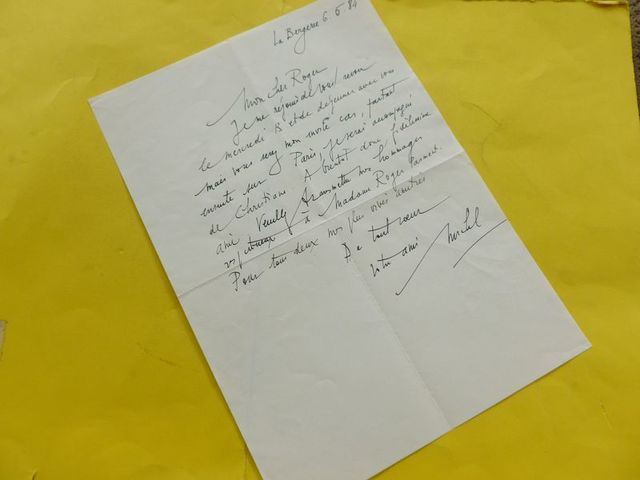 La Bergerie 6. 6 84
Mon cher Roger
Je me réjouis de vous revoir
le mercredi 13 et de déjeuner avec vous
mais vous serez mon invité car, partant
ensuite sur Paris, je serai accompagné
de Christiane. A bientôt donc fidélissime
ami Veuillez transmettre mes hommages
à Madame Roger
Pour tous deux mes plus vives amitiés
De tout cœur
votre ami Michel